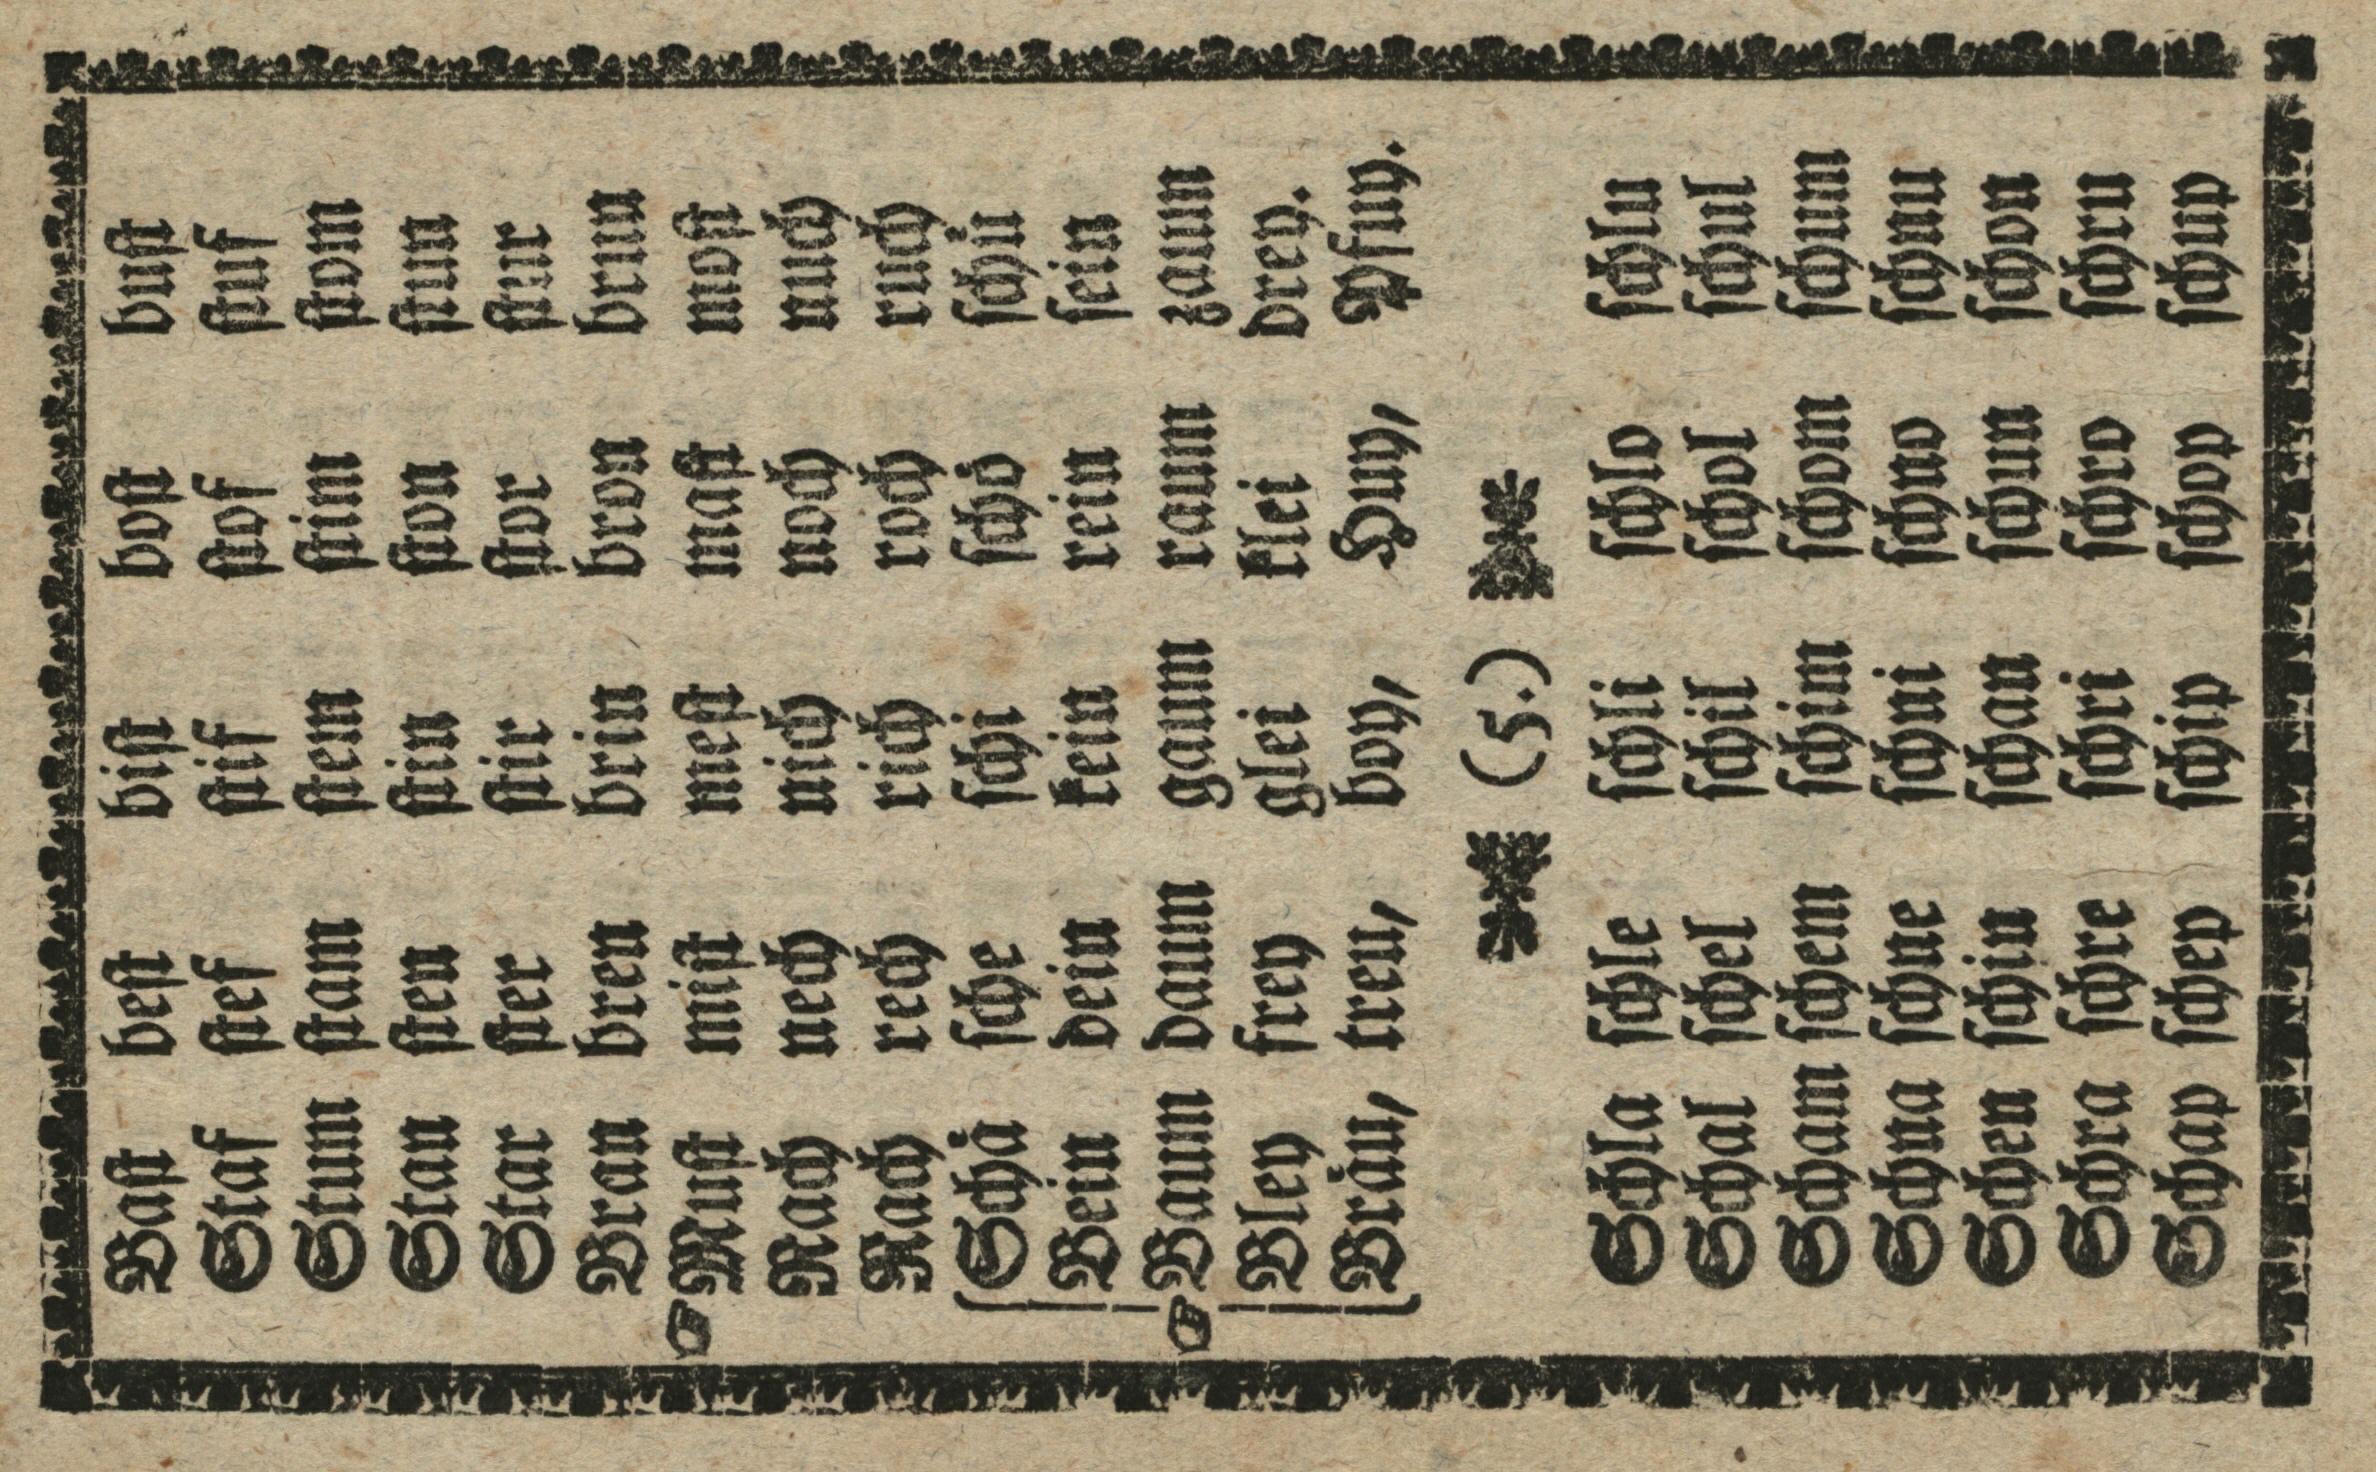 Baſt beſt biſt boſt buſt
Staf ſtef ſtif ſtof ſtuf
Stum ſtam ſtem ſtim ſtom
Stan ſten ſtin ſton ſtun
Star ſter ſtir ſtor ſtur
Bran bren brin bron brun
☞ Muſt miſt meſt maſt moſt
Nach nech nich noch nuch
Rach rech rich roch ruch
Schå ſche ſchi ſchȯ ſchu̇
Bein dein kein rein ſein
☞ Baum daum gaum raum zaum
Bley frey glei klei drey.
Bråu, treu, boy, Huy, Pfuy.
(5.)
Schla ſchle ſchli ſchlo ſchlu
Schal ſchel ſchil ſchol ſchul
Scham ſchem ſchim ſchom ſchum
Schna ſchne ſchni ſchno ſchnu
Schen ſchin ſchan ſchun ſchon
Schra ſchre ſchri ſchro ſchru
Schap ſchep ſchip ſchop ſchup